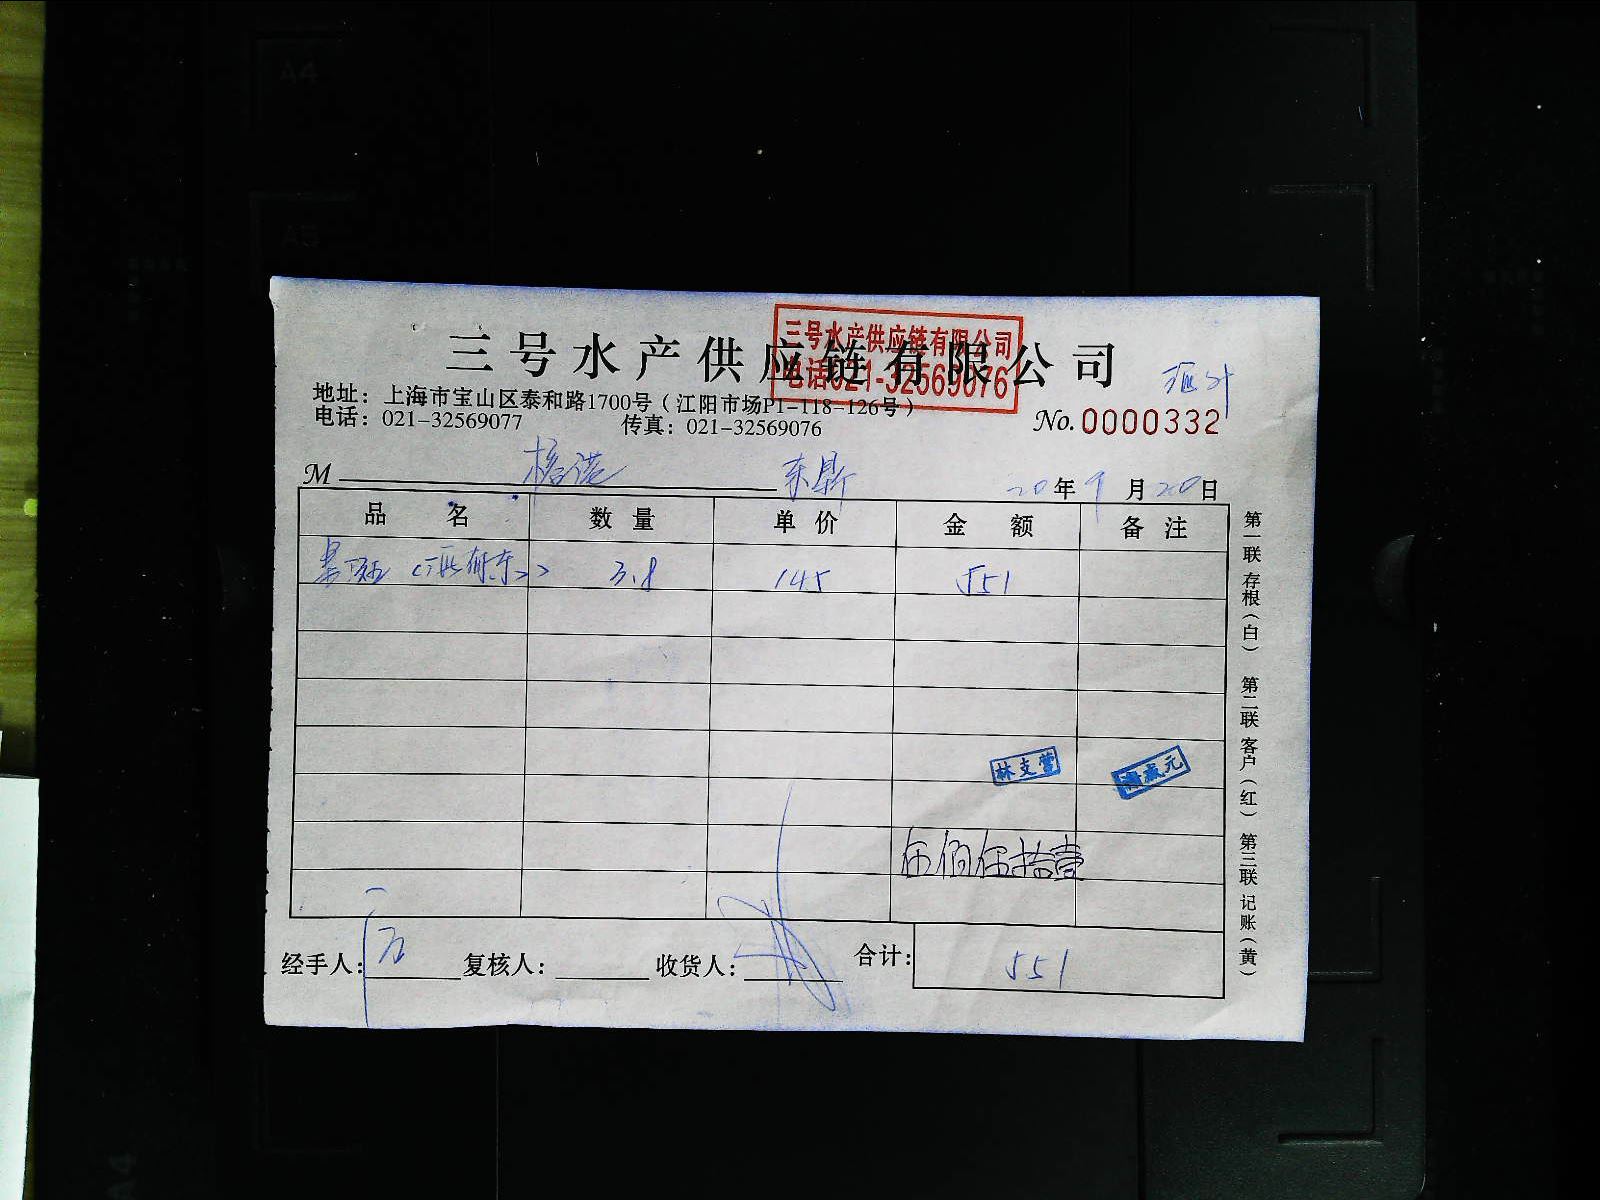 三号水产供应链有限公司
三号水产供应链有限公司
电话021-32569076
地址：上海市宝山区泰和路1700号（江阳市场P1-118-126号）
电话：021-32569077 传真：021-32569076
No. 0000332
M 格诺
20年9月20日
品名 数量 单价 金额 备注
3.8 145 551
林支营
伍佰伍拾壹
经手人： 复核人： 收货人： 合计： 551
第一联 存根（白） 第二联 客户（红） 第三联 记账（黄）
A4
A5
A4